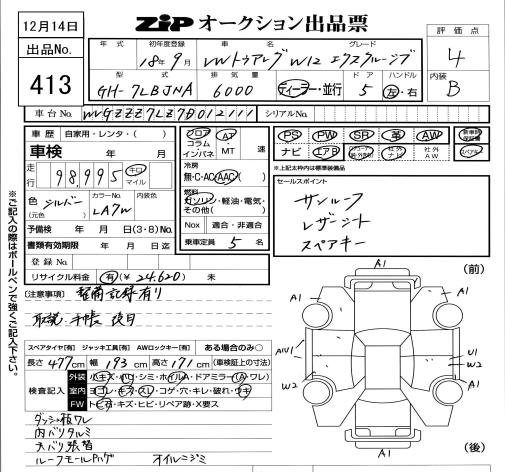 12月14日
ZiP オークション出品票
出品No.
413
評価点
4
内装
B
年式 初年度登録 車名 グレード
18年9月 VWトゥアレグ W12 エクスクルーシブ
型式 排気量 ドア ハンドル
GH-7LBJNA 6000 ディーラー・並行 5 左・右
車台No. WVGZZZ7LZ7D012111 シリアルNo.
車歴 自家用・レンタ・( )
フロア AT
コラム ・
インパネ MT 速
PS PW SR 革 AW 新車時保証書
ナビ エアB 社外ナビ 社外AW
※上記太枠内は標準装備品
車検 年 月
冷房
無・C・AC・AAC
走行 98,995 千キロ マイル
燃料
ガソリン・軽油・電気・
その他( )
セールスポイント
サンルーフ
レザーシート
スペアキー
色 シルバー カラーNo. LA7W 内装色
(元色)
Nox 適合・非適合
予備検 年 月 日(3・8)No.
書類有効期限 年 月 日迄
乗車定員 5 名
登録No.
リサイクル料金 有(¥ 24,620 ) 未
(注意事項) 整備記録有り
取説・手帳 後日
スペアタイヤ[有] ジャッキ工具[有] AWロックキー[有] ある場合のみ○
長さ 477cm 幅 193cm 高さ 171cm (車検証上の寸法)
検査記入
外装 小キズ・小凹・シミ・ホイルA・ドアミラー(A・ワレ)
室内 ヨゴレ・キズ・スレ・コゲ・穴・キレ・破れ・ウキ
FW トビ石・キズ・ヒビ・リペア跡・X要ス
ダッシュ板ワレ
内バリタルミ
天バリ張替
ルーフモールハゲ オイルニジミ
※ご記入の際はボールペンで強くご記入下さい。
(前)
A1
A1
A1
U1
W2
W2
A1
A1
A1
(後)